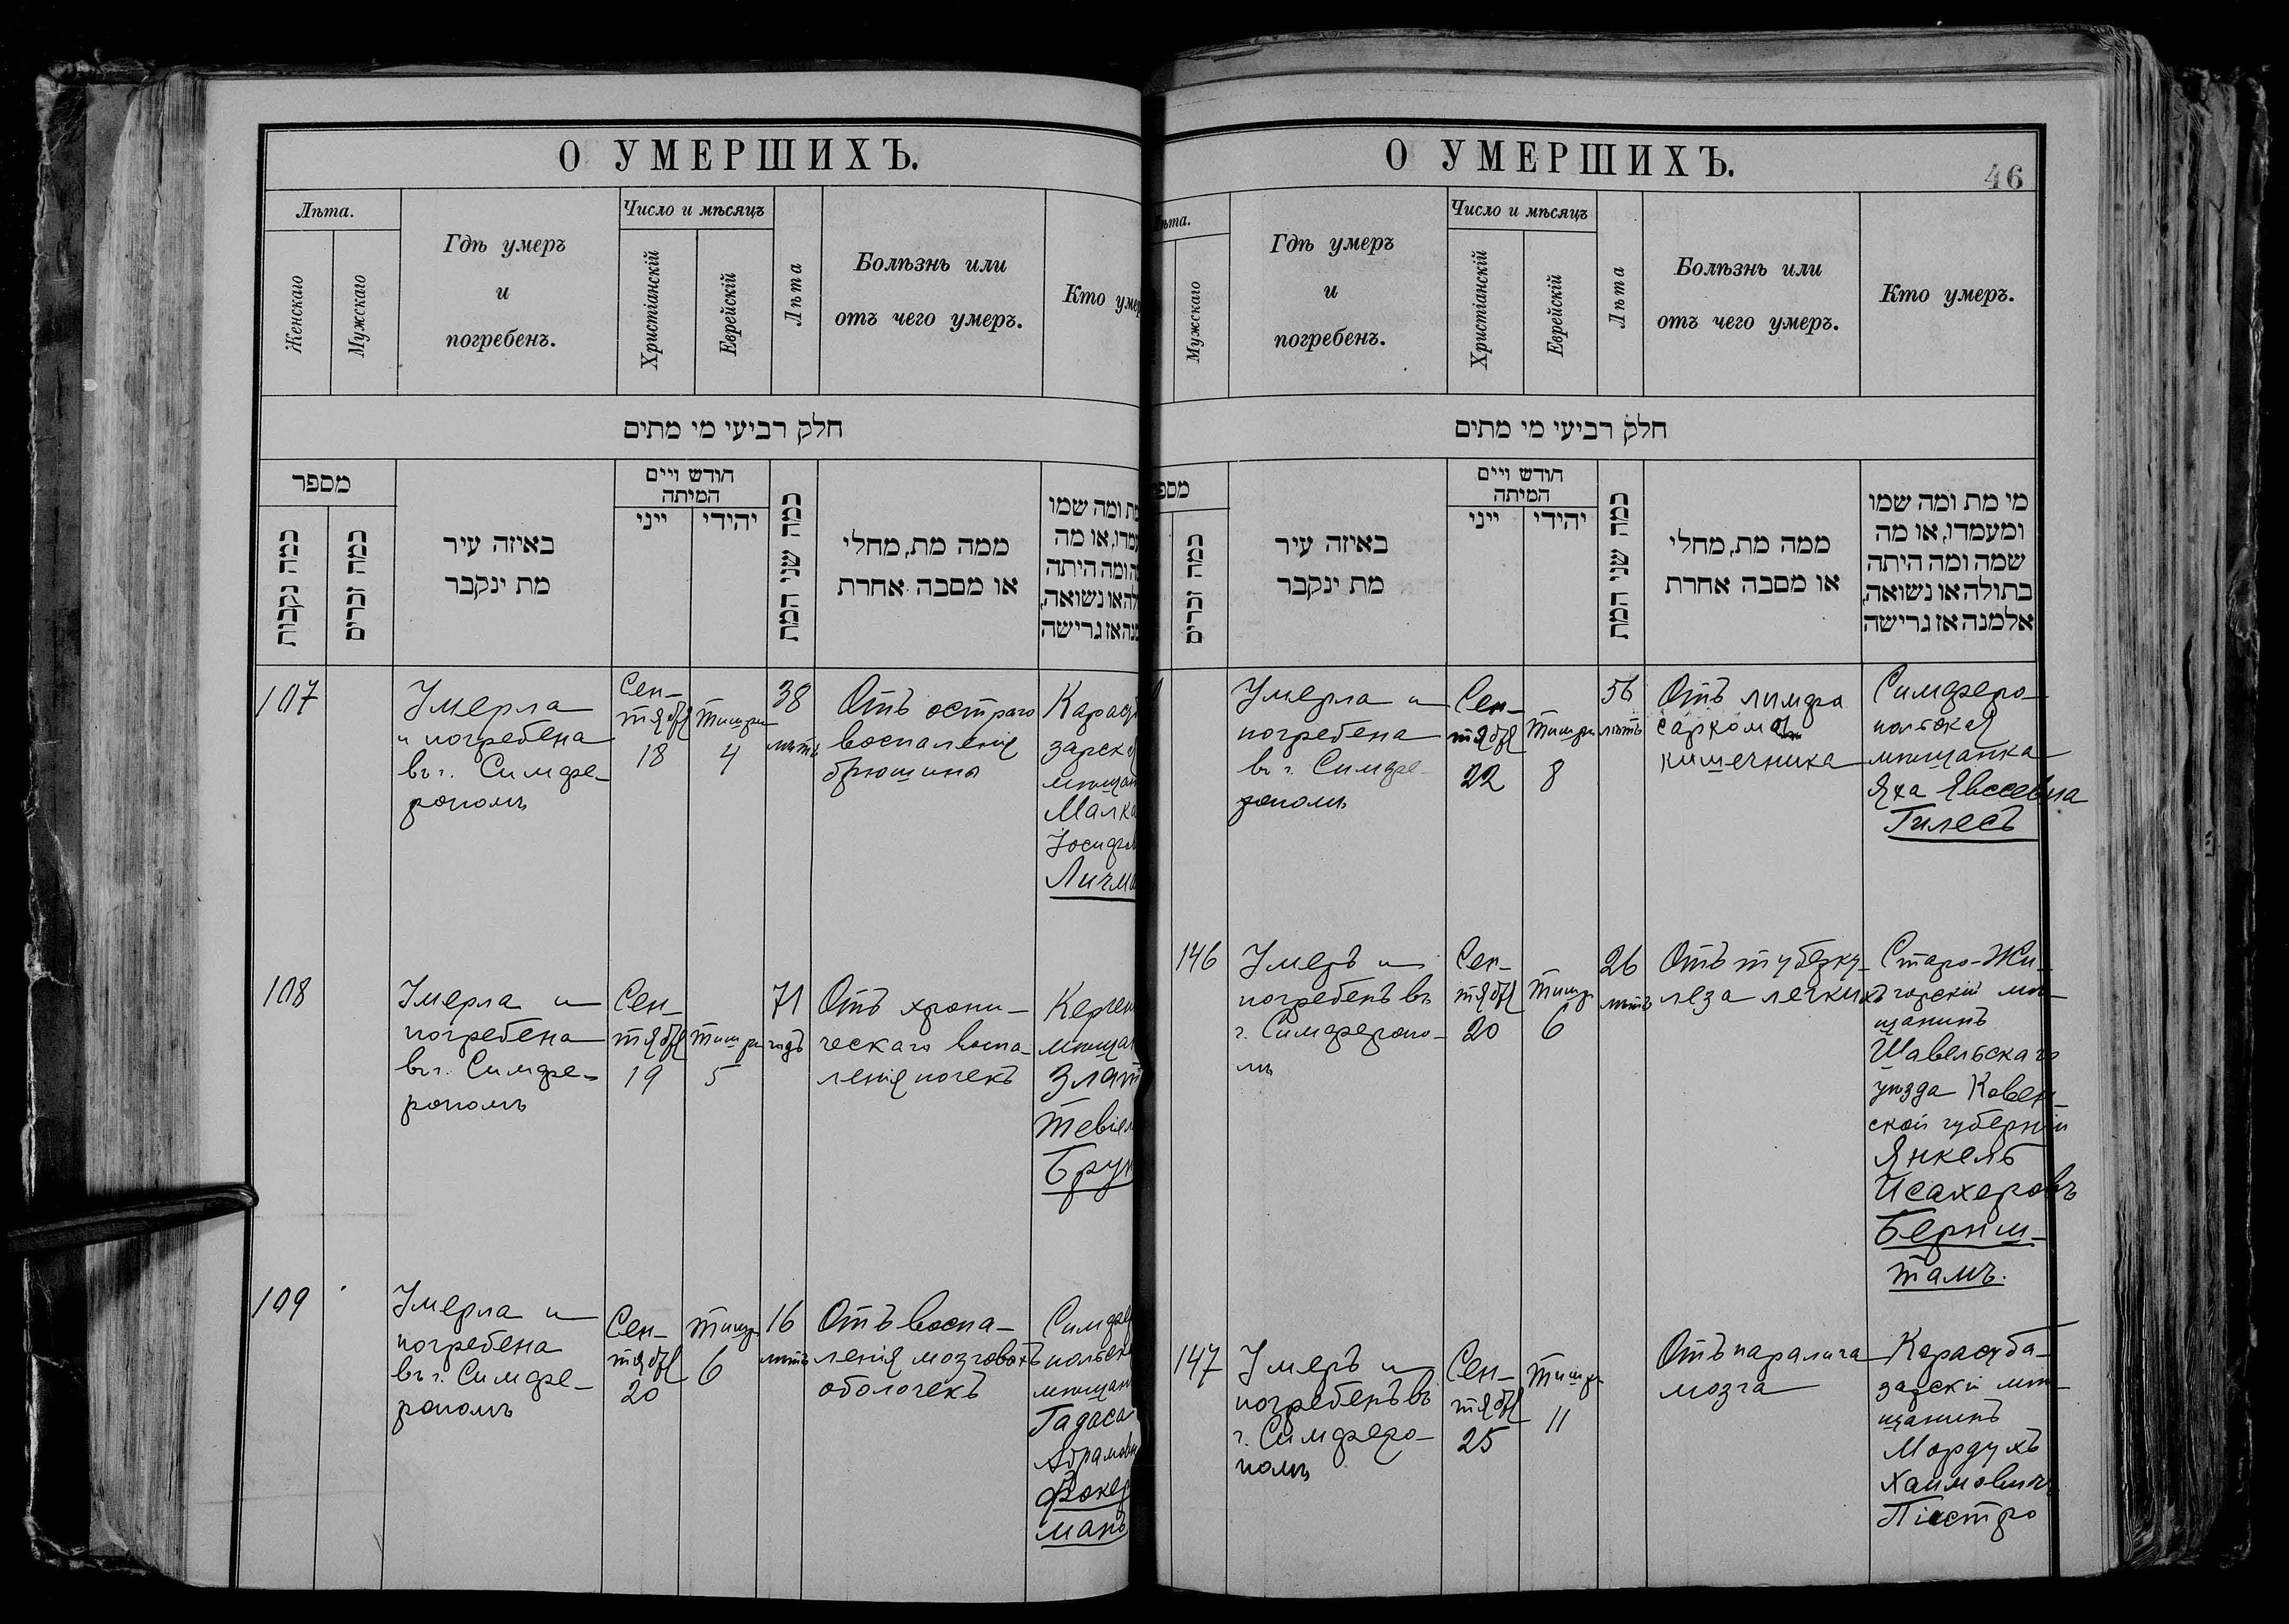 О УМЕРШИХЪ.
Лѣта.
Женскаго
Мужскаго
Гдѣ умеръ
и
погребенъ.
Число и мѣсяцъ
Христіанскій
Еврейскій
Лѣта
Болѣзнь или
отъ чего умеръ.
Кто умер
חלק רביעי מי מתים
מספר
כמה נקבות
כמה זכרים
באיזה עיר
מת ינקבר
חודש ויים
המיתה
ייני
יהידי
כמה שני המת
ממה מת, מחלי
או מסבה אחרת
ת ומה שמו
מדו, או מה
ה ומה היתה
לה או נשואה,
נה אז גרישה
107
Умерла
и погребена
въ г. Симфе-
рополѣ
Сен-
тября
18
Тишри
4
38
лѣтъ
Отъ остраго
воспаленія
брюшины
Карасуб
зарска
мѣщан
Малка
Іосифов
Личма
108
Умерла и
погребена
въ г. Симфе-
рополѣ
Сен-
тября
19
Тишри
5
71
годъ
Отъ хрони-
ческаго воспа-
ленія почекъ
Керен
мѣщан
Злат
Тевіел
Брун
109
Умерла и
погребена
въ г. Симфе-
рополѣ
Сен-
тября
20
Тишри
6
16
лѣтъ
Отъ воспа-
ленія мозговыхъ
оболочекъ
Симфер
польск
мѣщан
Гадаса
Абрамовн
Фокер
манъ
О УМЕРШИХЪ.
46
ѣта.
Мужскаго
Гдѣ умеръ
и
погребенъ.
Число и мѣсяцъ
Христіанскій
Еврейскій
Лѣта
Болѣзнь или
отъ чего умеръ.
Кто умеръ.
חלק רביעי מי מתים
מספ
כמה זכרים
באיזה עיר
מת ינקבר
חודש ויים
המיתה
ייני
יהידי
כמה שני המת
ממה מת, מחלי
או מסבה אחרת
מי מת ומה שמו
ומעמדו, או מה
שמה ומה היתה
בתולה או נשואה,
אלמנה אז גרישה
Умерла и
погребена
въ г. Симфе-
рополѣ
Сен-
тября
22
Тишри
8
56
лѣтъ
Отъ лимфо
саркомы
кишечника
Симферо-
польская
мѣщанка
Яха Явсеевна
Гилесъ
146
Умеръ и
погребенъ въ
г. Симферопо-
лѣ
Сен-
тября
20
Тишр
6
26
лѣтъ
Отъ туберку-
леза легкихъ
Старо-Жи-
горскій мѣ-
щанинъ
Шавельскаго
уѣзда Ковен-
ской губерніи
Янкель
Исахеровъ
Бернш-
тамъ.
147
Умеръ и
погребенъ въ
г. Симферо-
полѣ
Сен-
тября
25
Тишри
11
Отъ паралича
мозга
Карасуба-
зарскій мѣ-
щанинъ
Мордухъ
Хаимовичъ
Піастро